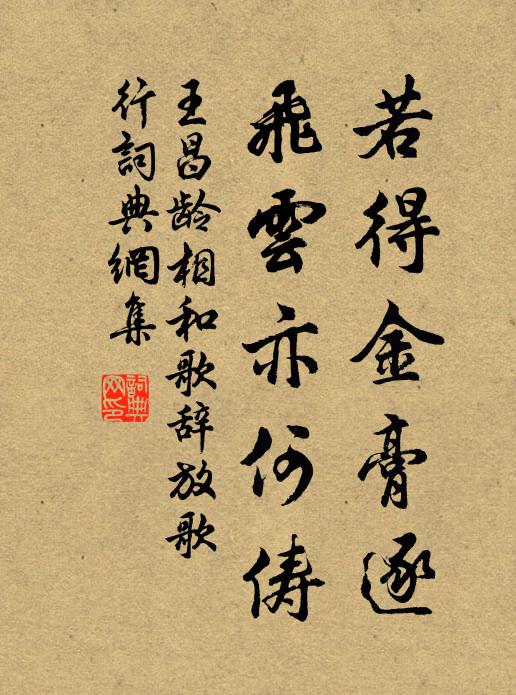 若得金膏逐
飛雲亦何儔
王昌龄相和歌辞放歌
行詞典網集
詞典
网印